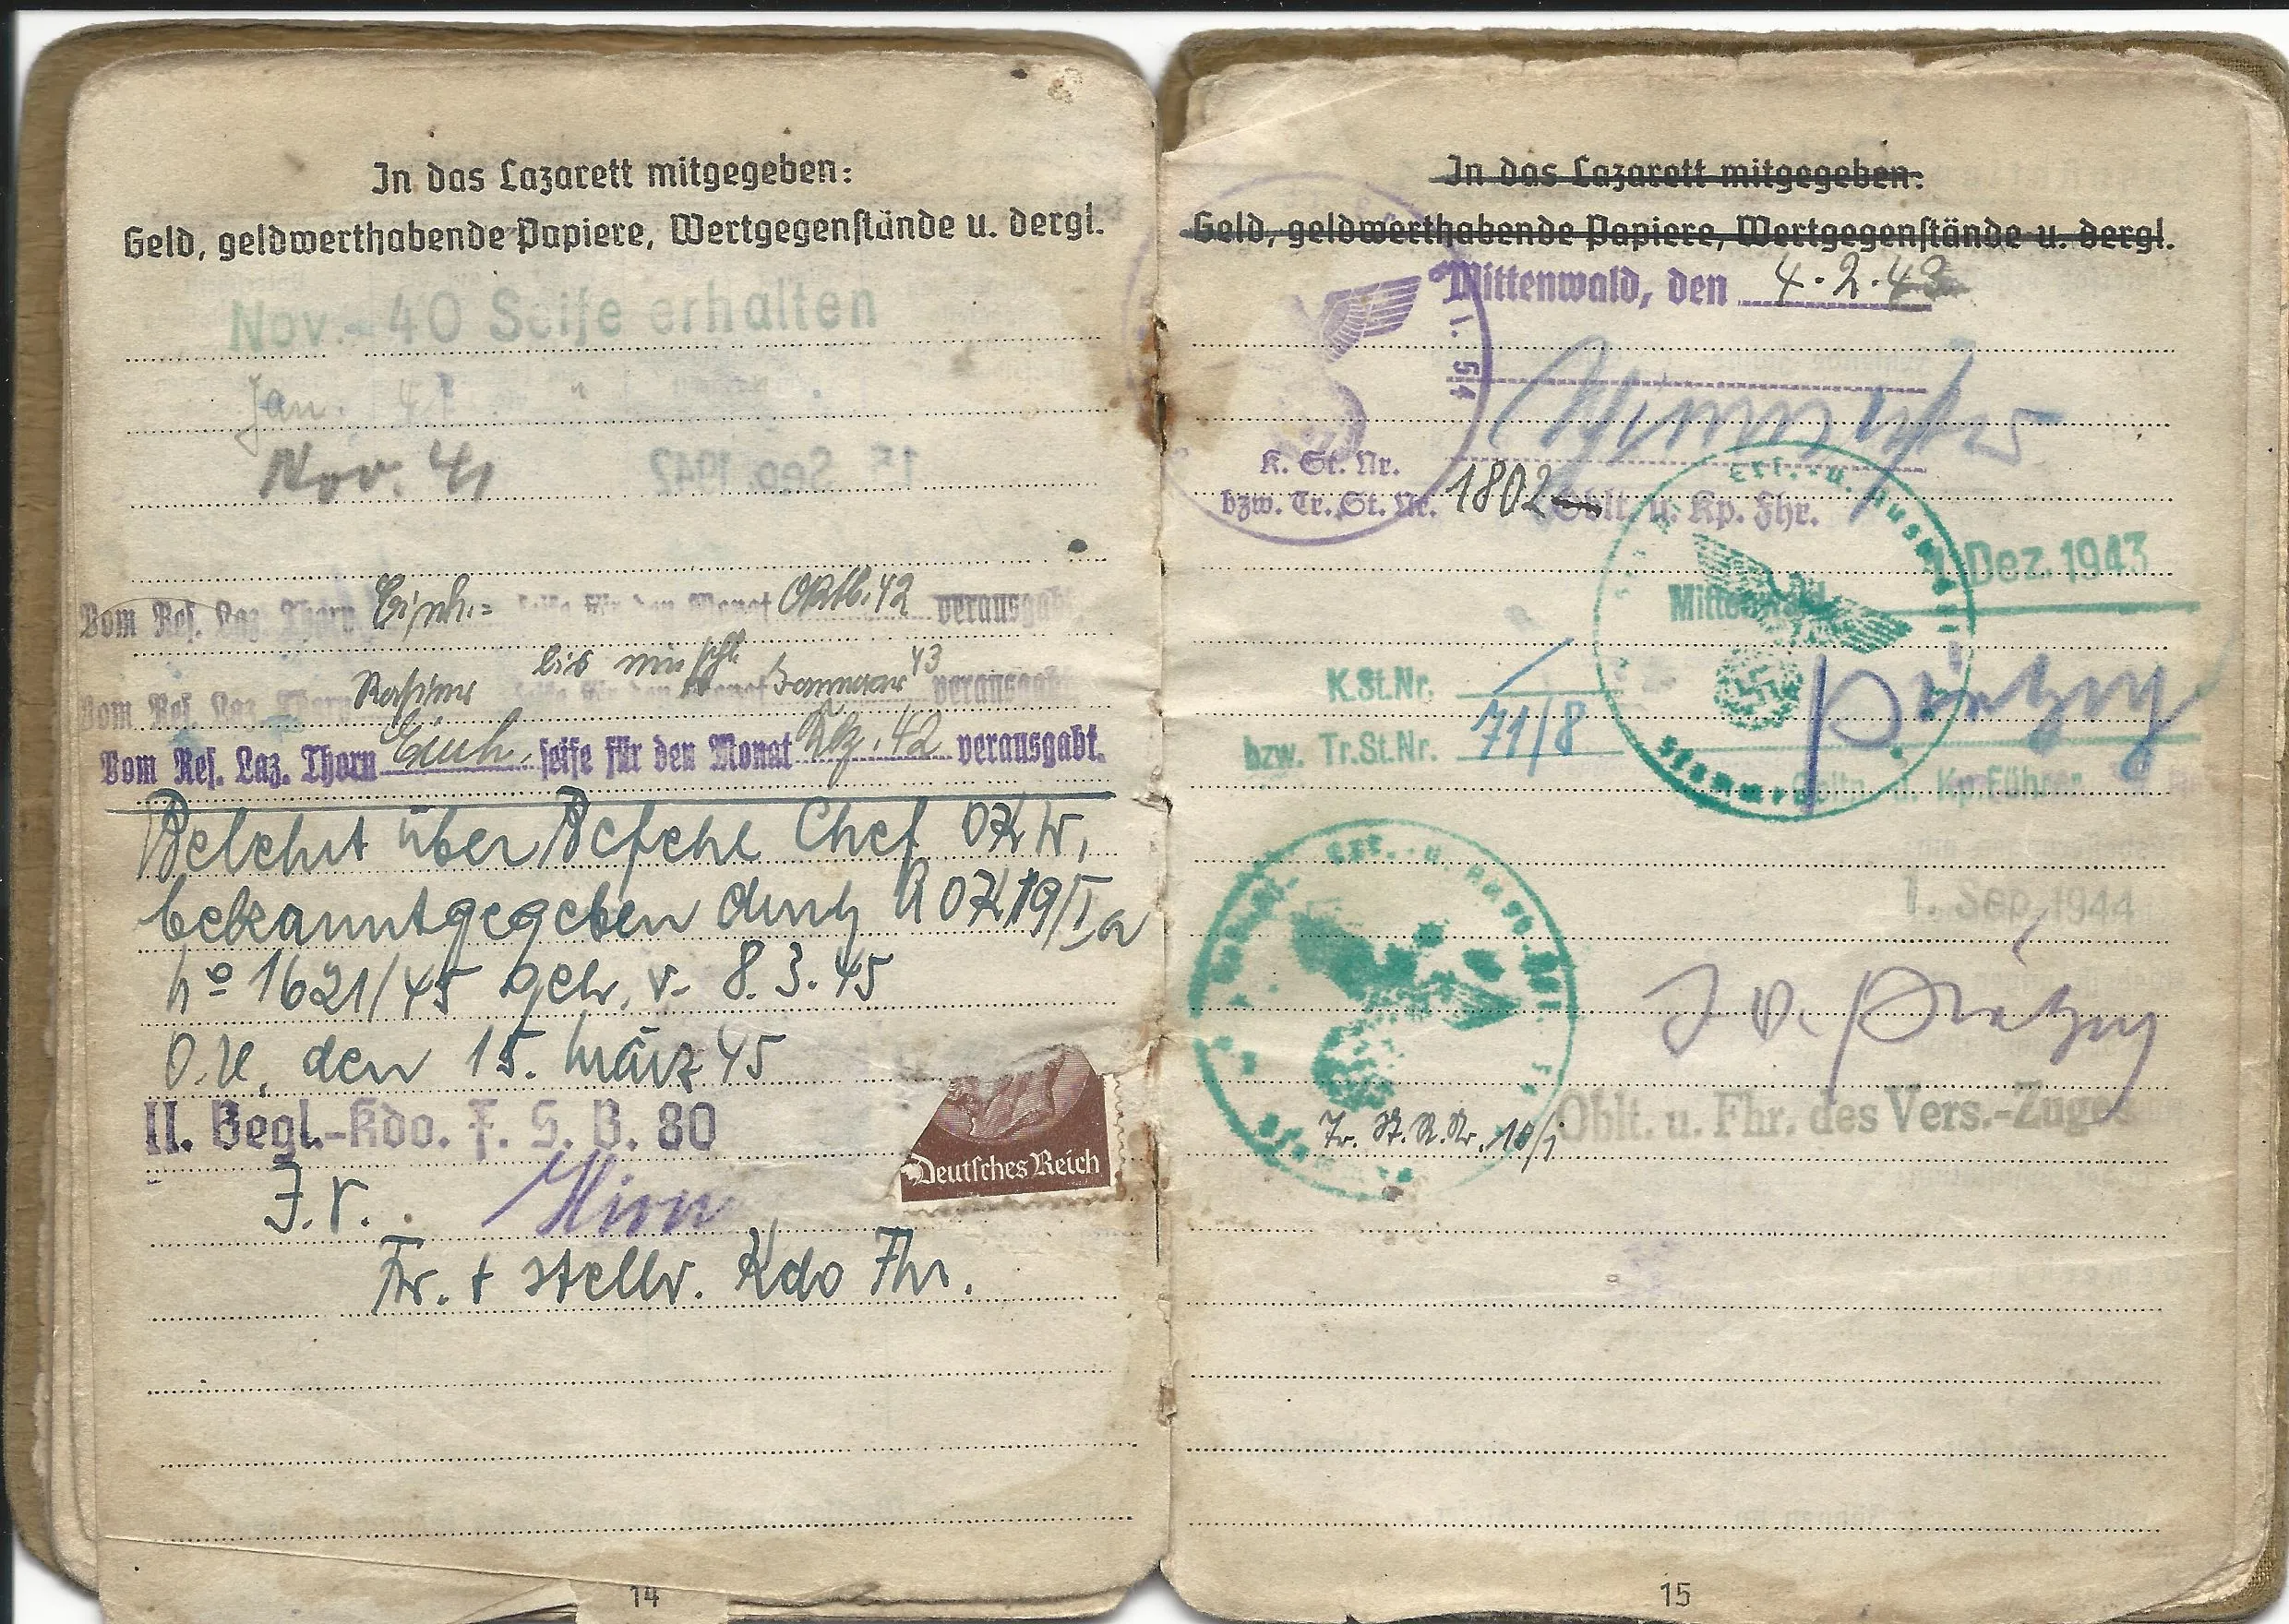 In das Lazarett mitgegeben:
Geld, geldwerthabende Papiere, Wertgegenstände u. dergl.
Nov.- 40 Seife erhalten
Jan. 41 "
Nov. 41
15. Sep. 1942
Vom Res. Laz. Thorn Einh.= seife für den Monat Oktb. 42 verausgabt
Rasier bis einschl.
Vom Res. Laz. Thorn seife für den Monat Januar 43 verausgabt
Vom Res. Laz. Thorn Einh. seife für den Monat Dez. 42 verausgabt.
Belehrt über Befehl Chef OKW,
bekanntgegeben durch AOK 19/Ia
No 1621/45 geh. v. 8.3.45
O.U. den 15. März 45
II. Begl.-Kdo. F. S. B. 80
Deutsches Reich
I.V.
Fr. + stellv. Kdo Fhr.
14
In das Lazarett mitgegeben:
Geld, geldwerthabende Papiere, Wertgegenstände u. dergl.
Mittenwald, den 4.2.43
54
K. St. Nr.
bzw. Tr. St. Nr. 1802
Oblt. u. Kp. Fhr.
Ers.- u. Ausb.
1. Dez. 1943
Mittenwald
K.St.Nr.
bzw. Tr.St.Nr. 71/8
Stamm
Obltn. u. Kp.Führer
Ers.- u. Ausb.
1. Sep. 1944
I.V.
Oblt. u. Fhr. des Vers.-Zuges
Tr. St. N. Nr. 10/i
15